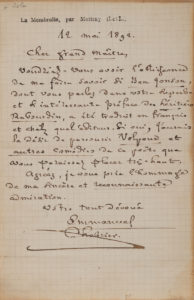 La Membrolle, par Mettray (I.-&-L.)
12 mai 1892.
Cher grand maître,
Voudriez-vous avoir l'obligeance
de me faire savoir si Ben Jonson,
dont vous parlez dans votre superbe
et si intéressante préface des
Rabourdin, a été traduit en français
et chez quel éditeur. Si oui, j'aurais
le désir de parcourir Volpone et
autres comédies de ce poète que
vous paraissez placer très-haut.
Agréez, je vous prie l'hommage
de ma sincère et reconnaissante
admiration.
Votre tout dévoué
Emmanuel
Chabrier.